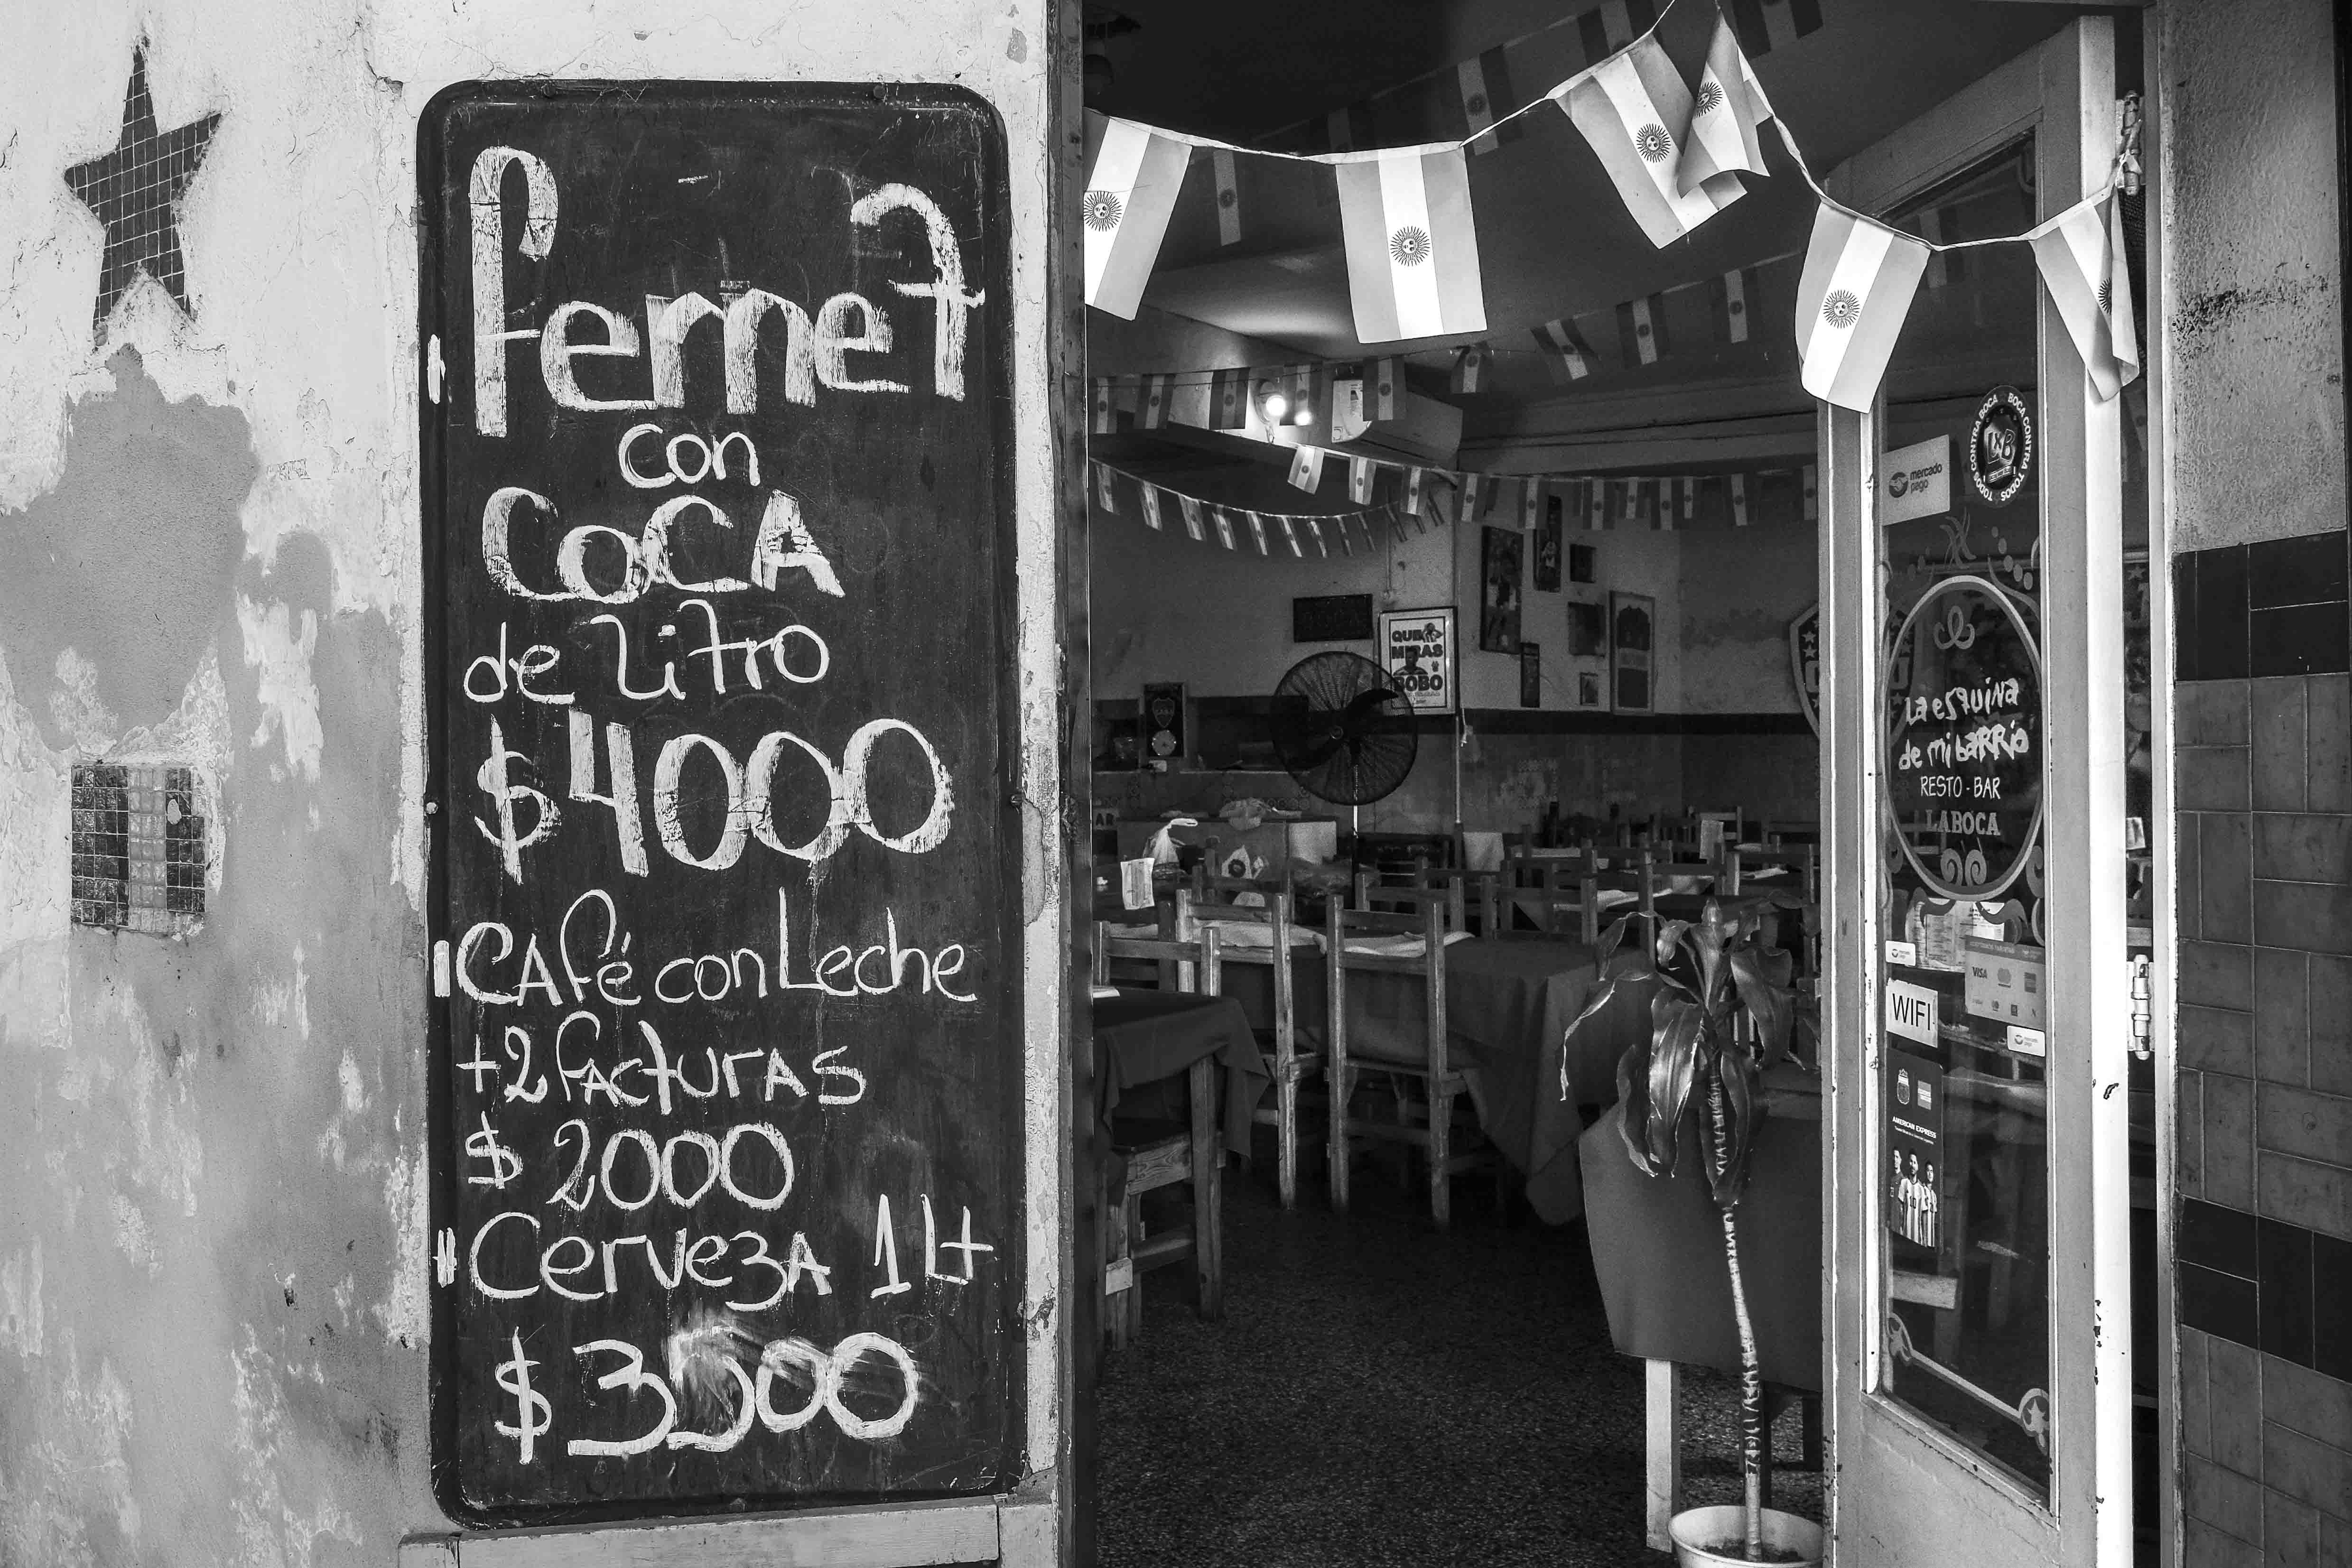 Fernet
con
CoCA
de Litro
$4000
CAfé con Leche
+2 FActurAS
$ 2000
CervezA 1 Lt
$ 3500
QUE
MIRAS
BOBO
mercado
pago
BOCA CONTRA TODOS
TODOS CONTRA BOCA
LA esquina
de mi bARRio
RESTO - BAR
LA BOCA
VISA
WIFI
AMERICAN EXPRESS